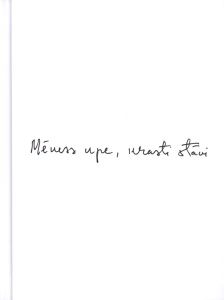 Mēness upe, krasti stāvi